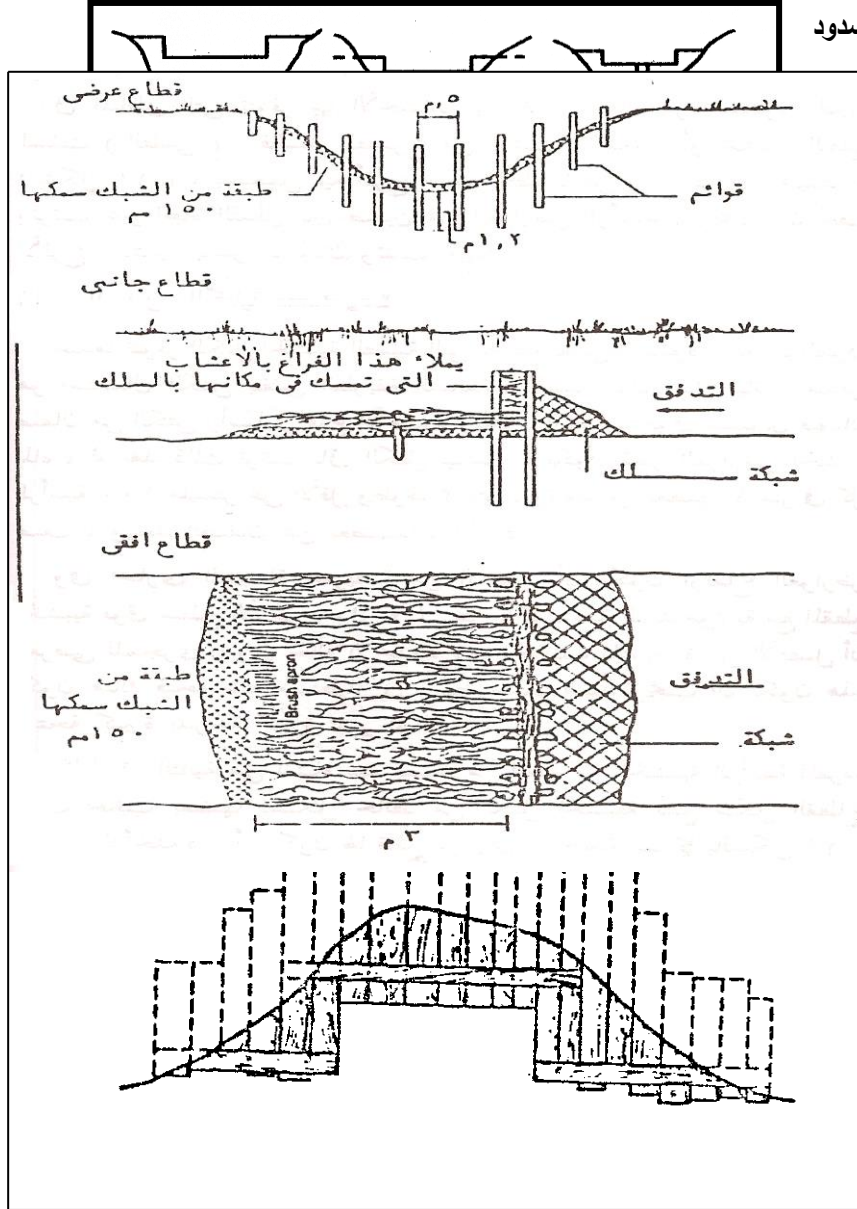 سدود
قطاع عرضى
٥,م
قوائم
طبقة من الشبك سمكها
١٥٠ مم
١,٢م
قطاع جانبى
يملاء هذا الفراغ بالأعشاب
التى تمسك فى مكانها بالسلك
التدفق
شبكة سلك
قطاع افقى
Brush apron
طبقة من
الشبك سمكها
١٥٠مم
التدفق
شبكة
٣ م